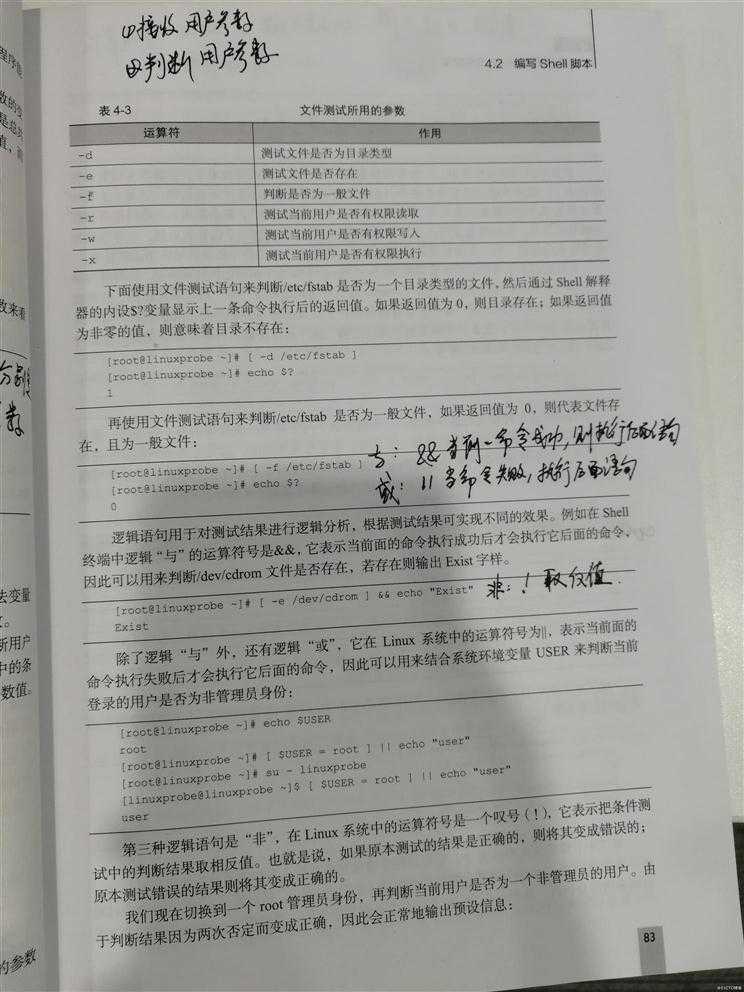 ①接收用户参数
②判断用户参数
4.2 编写 Shell 脚本
表 4-3 文件测试所用的参数
运算符 作用
-d 测试文件是否为目录类型
-e 测试文件是否存在
-f 判断是否为一般文件
-r 测试当前用户是否有权限读取
-w 测试当前用户是否有权限写入
-x 测试当前用户是否有权限执行
下面使用文件测试语句来判断/etc/fstab 是否为一个目录类型的文件,然后通过 Shell 解释
器的内设$?变量显示上一条命令执行后的返回值。如果返回值为 0,则目录存在;如果返回值
为非零的值,则意味着目录不存在:
[root@linuxprobe ~]# [ -d /etc/fstab ]
[root@linuxprobe ~]# echo $?
1
再使用文件测试语句来判断/etc/fstab 是否为一般文件,如果返回值为 0,则代表文件存
在,且为一般文件:
与:&& 当前一命令成功,则执行后面语句
[root@linuxprobe ~]# [ -f /etc/fstab ]
或:|| 当命令失败,执行后面语句
[root@linuxprobe ~]# echo $?
0
逻辑语句用于对测试结果进行逻辑分析,根据测试结果可实现不同的效果。例如在 Shell
终端中逻辑“与”的运算符号是&&,它表示当前面的命令执行成功后才会执行它后面的命令,
因此可以用来判断/dev/cdrom 文件是否存在,若存在则输出 Exist 字样。
[root@linuxprobe ~]# [ -e /dev/cdrom ] && echo "Exist"
非:! 取反值.
Exist
除了逻辑“与”外,还有逻辑“或”,它在 Linux 系统中的运算符号为||,表示当前面的
命令执行失败后才会执行它后面的命令,因此可以用来结合系统环境变量 USER 来判断当前
登录的用户是否为非管理员身份:
[root@linuxprobe ~]# echo $USER
root
[root@linuxprobe ~]# [ $USER = root ] || echo "user"
[root@linuxprobe ~]# su - linuxprobe
[linuxprobe@linuxprobe ~]$ [ $USER = root ] || echo "user"
user
第三种逻辑语句是“非”,在 Linux 系统中的运算符号是一个叹号(!),它表示把条件测
试中的判断结果取相反值。也就是说,如果原本测试的结果是正确的,则将其变成错误的;
原本测试错误的结果则将其变成正确的。
我们现在切换到一个 root 管理员身份,再判断当前用户是否为一个非管理员的用户。由
于判断结果因为两次否定而变成正确,因此会正常地输出预设信息:
83
程序能
数的变
是总共
值,而
数来看
数
去变量
新用户
中的条
数值。
的参数
@51CTO博客